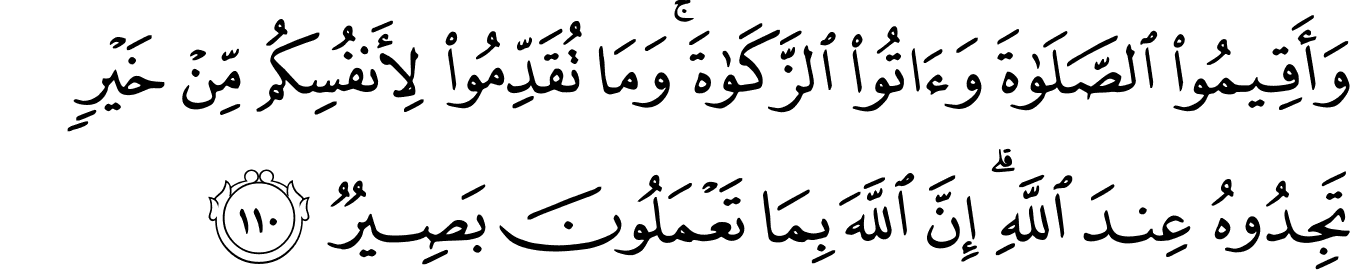 وَأَقِيمُوا۟ ٱلصَّلَوٰةَ وَءَاتُوا۟ ٱلزَّكَوٰةَ ۚ وَمَا تُقَدِّمُوا۟ لِأَنفُسِكُم مِّنْ خَيْرٍ
تَجِدُوهُ عِندَ ٱللَّهِ ۗ إِنَّ ٱللَّهَ بِمَا تَعْمَلُونَ بَصِيرٌ ١١٠